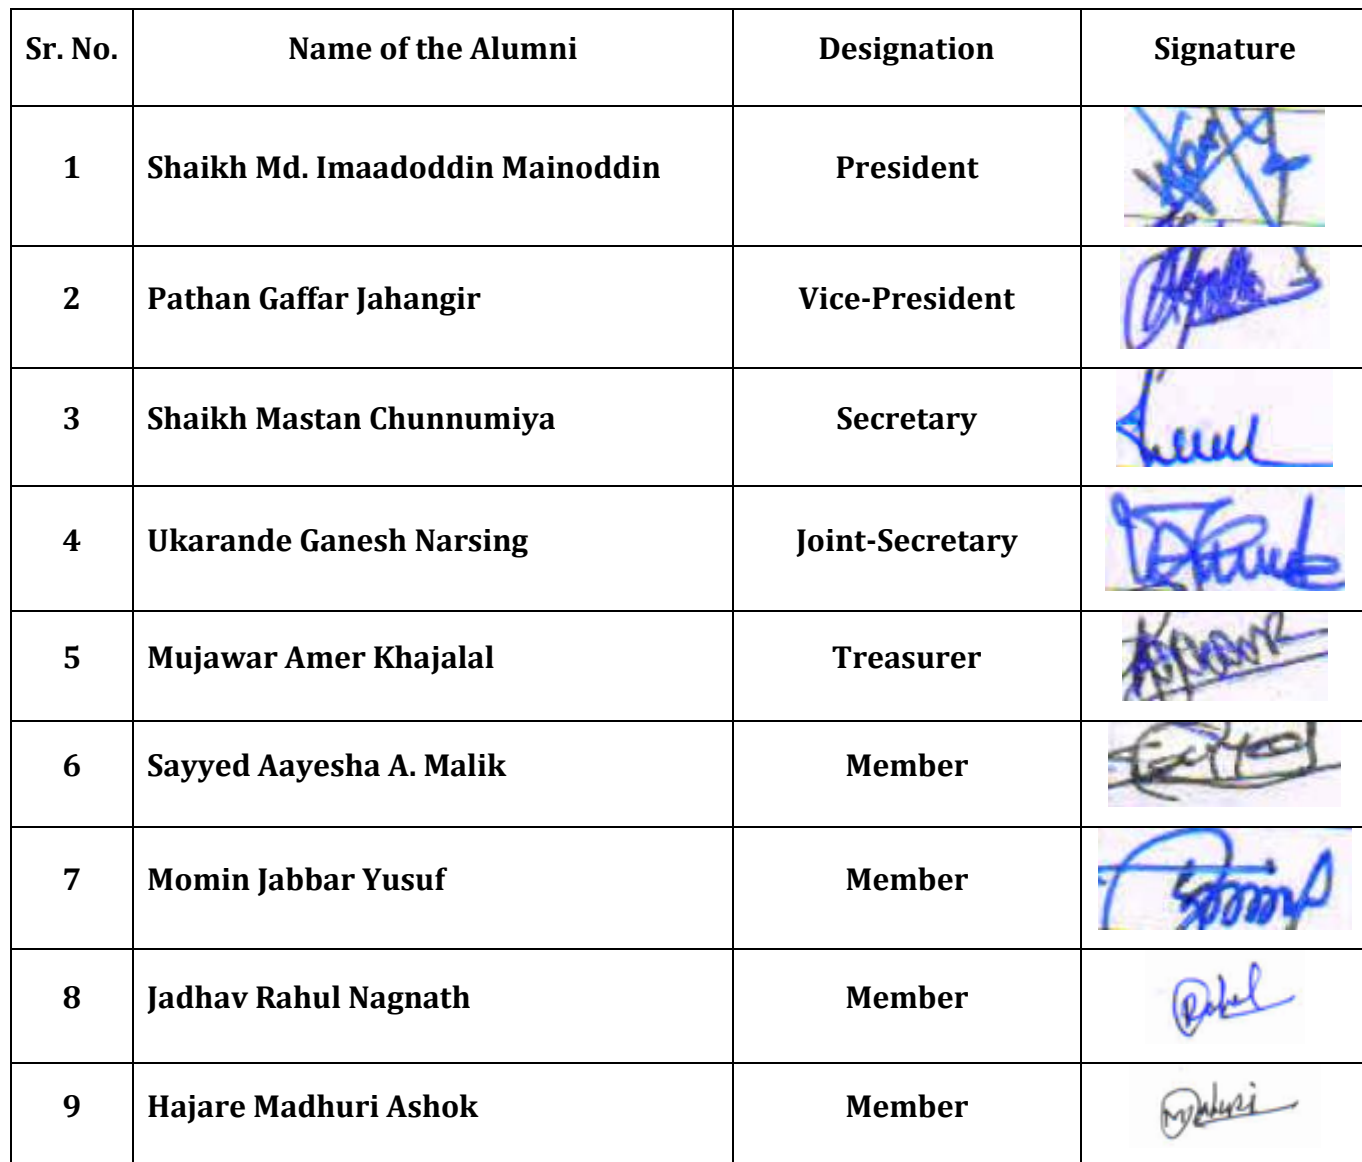 Sr. No. Name of the Alumni Designation Signature
1 Shaikh Md. Imaadoddin Mainoddin President
2 Pathan Gaffar Jahangir Vice-President
3 Shaikh Mastan Chunnumiya Secretary
4 Ukarande Ganesh Narsing Joint-Secretary
5 Mujawar Amer Khajalal Treasurer
6 Sayyed Aayesha A. Malik Member
7 Momin Jabbar Yusuf Member
8 Jadhav Rahul Nagnath Member Rahul
9 Hajare Madhuri Ashok Member Madhuri